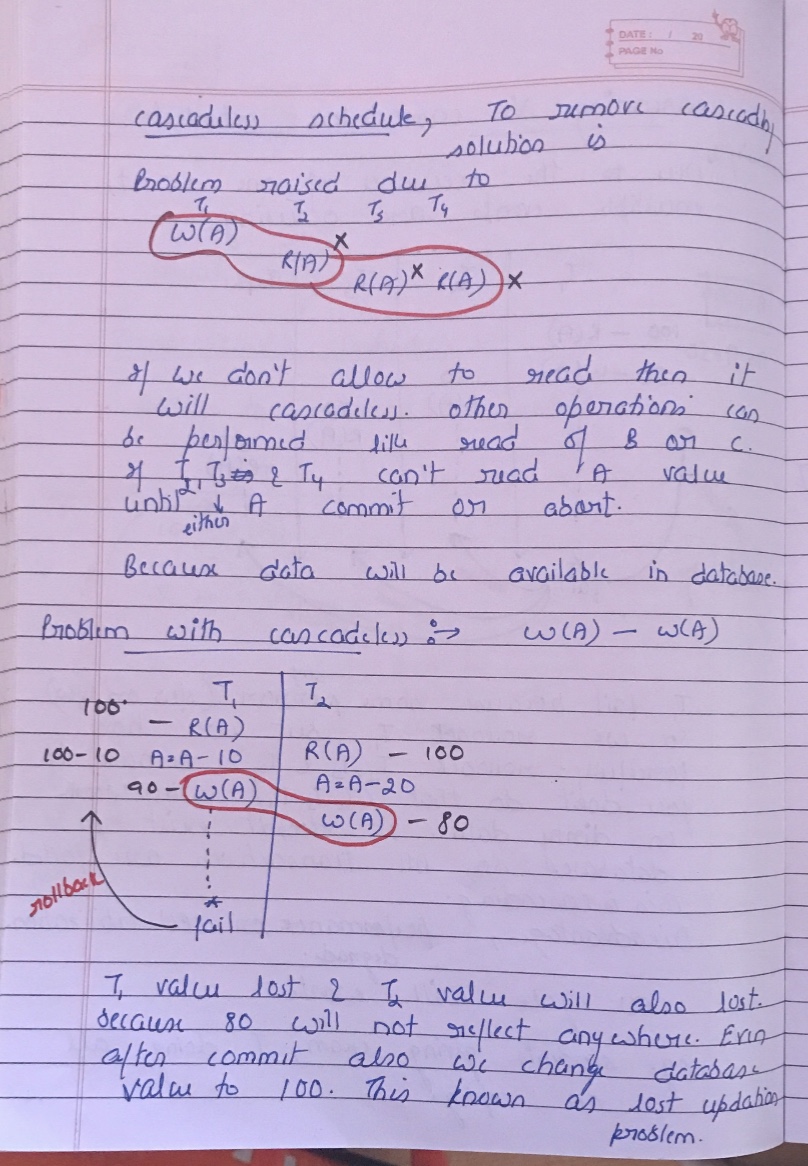 DATE: / 20
PAGE No
cascadeless schedule, To remove cascading
solution is
Problem raised due to
T1 T2 T3 T4
W(A)
R(A) x
R(A) x R(A) x
If we don't allow to read then it
will cascadeless. other operations can
be performed like read of B or c.
If T2, T3 & T4 can't read A value
until A commit or abort.
either
Because data will be available in database.
Problem with cascadeless :→ W(A) – W(A)
T1 T2
100
– R(A)
100-10 A=A-10 R(A) – 100
90 – W(A) A=A-20
W(A) – 80
rollback
* fail
T1 value lost & T2 value will also lost.
because 80 will not reflect anywhere. Even
after commit also we change database
value to 100. This known as lost updation
problem.